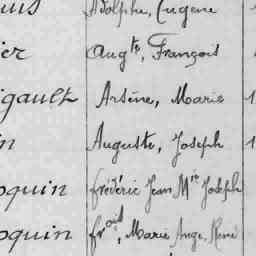 Adolphe, Eugène
ier Augte, François
igault Arsène, Marie 1
n Auguste, Joseph 1
oquin frédéric Jean Mie Joseph
oquin frois, Marie Ange, René